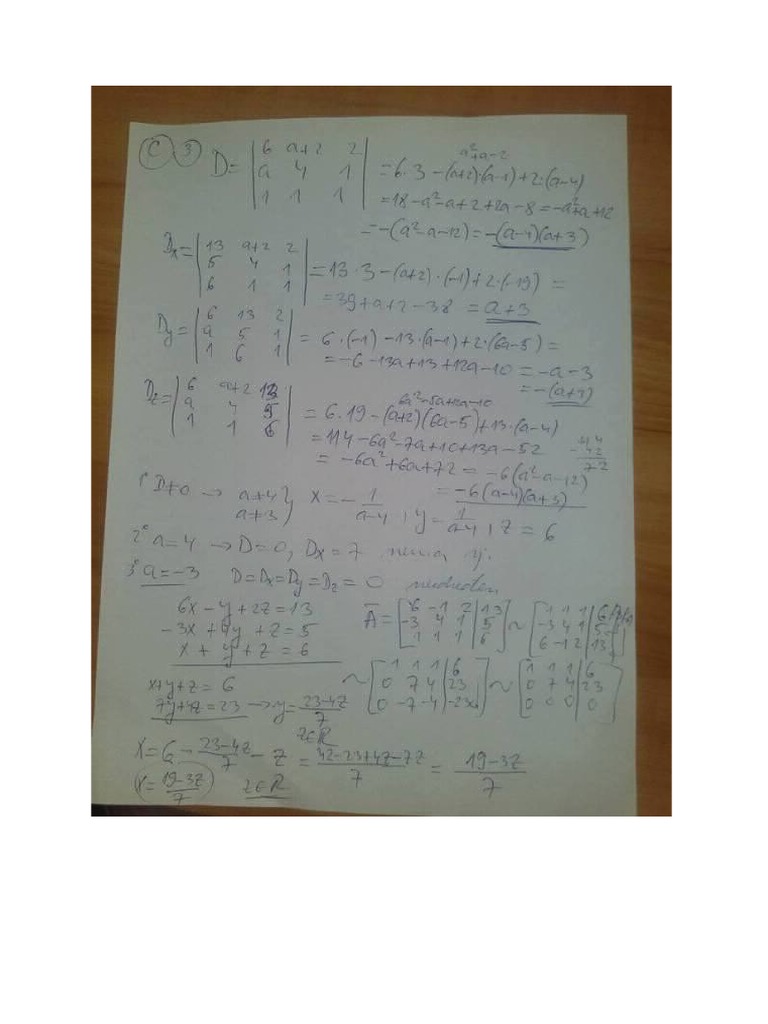 C 3
D = | 6 a+2 2 |
| a 4 1 |
| 1 1 1 |
a²+a-2
= 6·3 - (a+2)·(a-1) + 2·(a-4)
= 18 - a² - a + 2 + 2a - 8 = -a² + a + 12
= -(a² - a - 12) = -(a-4)(a+3)
Dx = | 13 a+2 2 |
| 5 4 1 |
| 6 1 1 |
= 13·3 - (a+2)·(-1) + 2·(-19) =
= 39 + a + 2 - 38 = a+3
Dy = | 6 13 2 |
| a 5 1 |
| 1 6 1 |
= 6·(-1) - 13·(a-1) + 2·(6a-5) =
= -6 - 13a + 13 + 12a - 10 = -a - 3
= -(a+3)
Dz = | 6 a+2 13 |
| a 4 5 |
| 1 1 6 |
6a²-5a+12a-10
= 6·19 - (a+2)(6a-5) + 13·(a-4)
= 114 - 6a² - 7a + 10 + 13a - 52
= -6a² + 6a + 72 = -6(a² - a - 12)
= -6(a-4)(a+3)
72
1° D≠0 → a≠4
a≠3 } x = -1/(a-4), y = 1/(a-4), z = 6
2° a=4 → D=0, Dx=7
3° a=-3 D=Dx=Dy=Dz=0
6x - y + 2z = 13
-3x + 4y + z = 5
x + y + z = 6
Ā = [ 6 -1 2 | 13 ]
[ -3 4 1 | 5 ]
[ 1 1 1 | 6 ]
~ [ 1 1 1 | 6 ]
[ -3 4 1 | 5 ]
[ 6 -1 2 | 13 ]
~ [ 1 1 1 | 6 ]
[ 0 7 4 | 23 ]
[ 0 -7 -4 | -23 ]
~ [ 1 1 1 | 6 ]
[ 0 7 4 | 23 ]
[ 0 0 0 | 0 ]
x+y+z = 6
7y+4z = 23 → y = (23-4z)/7
z∈R
x = 6 - (23-4z)/7 - z = (42-23+4z-7z)/7 = (19-3z)/7
x = (19-3z)/7 z∈R